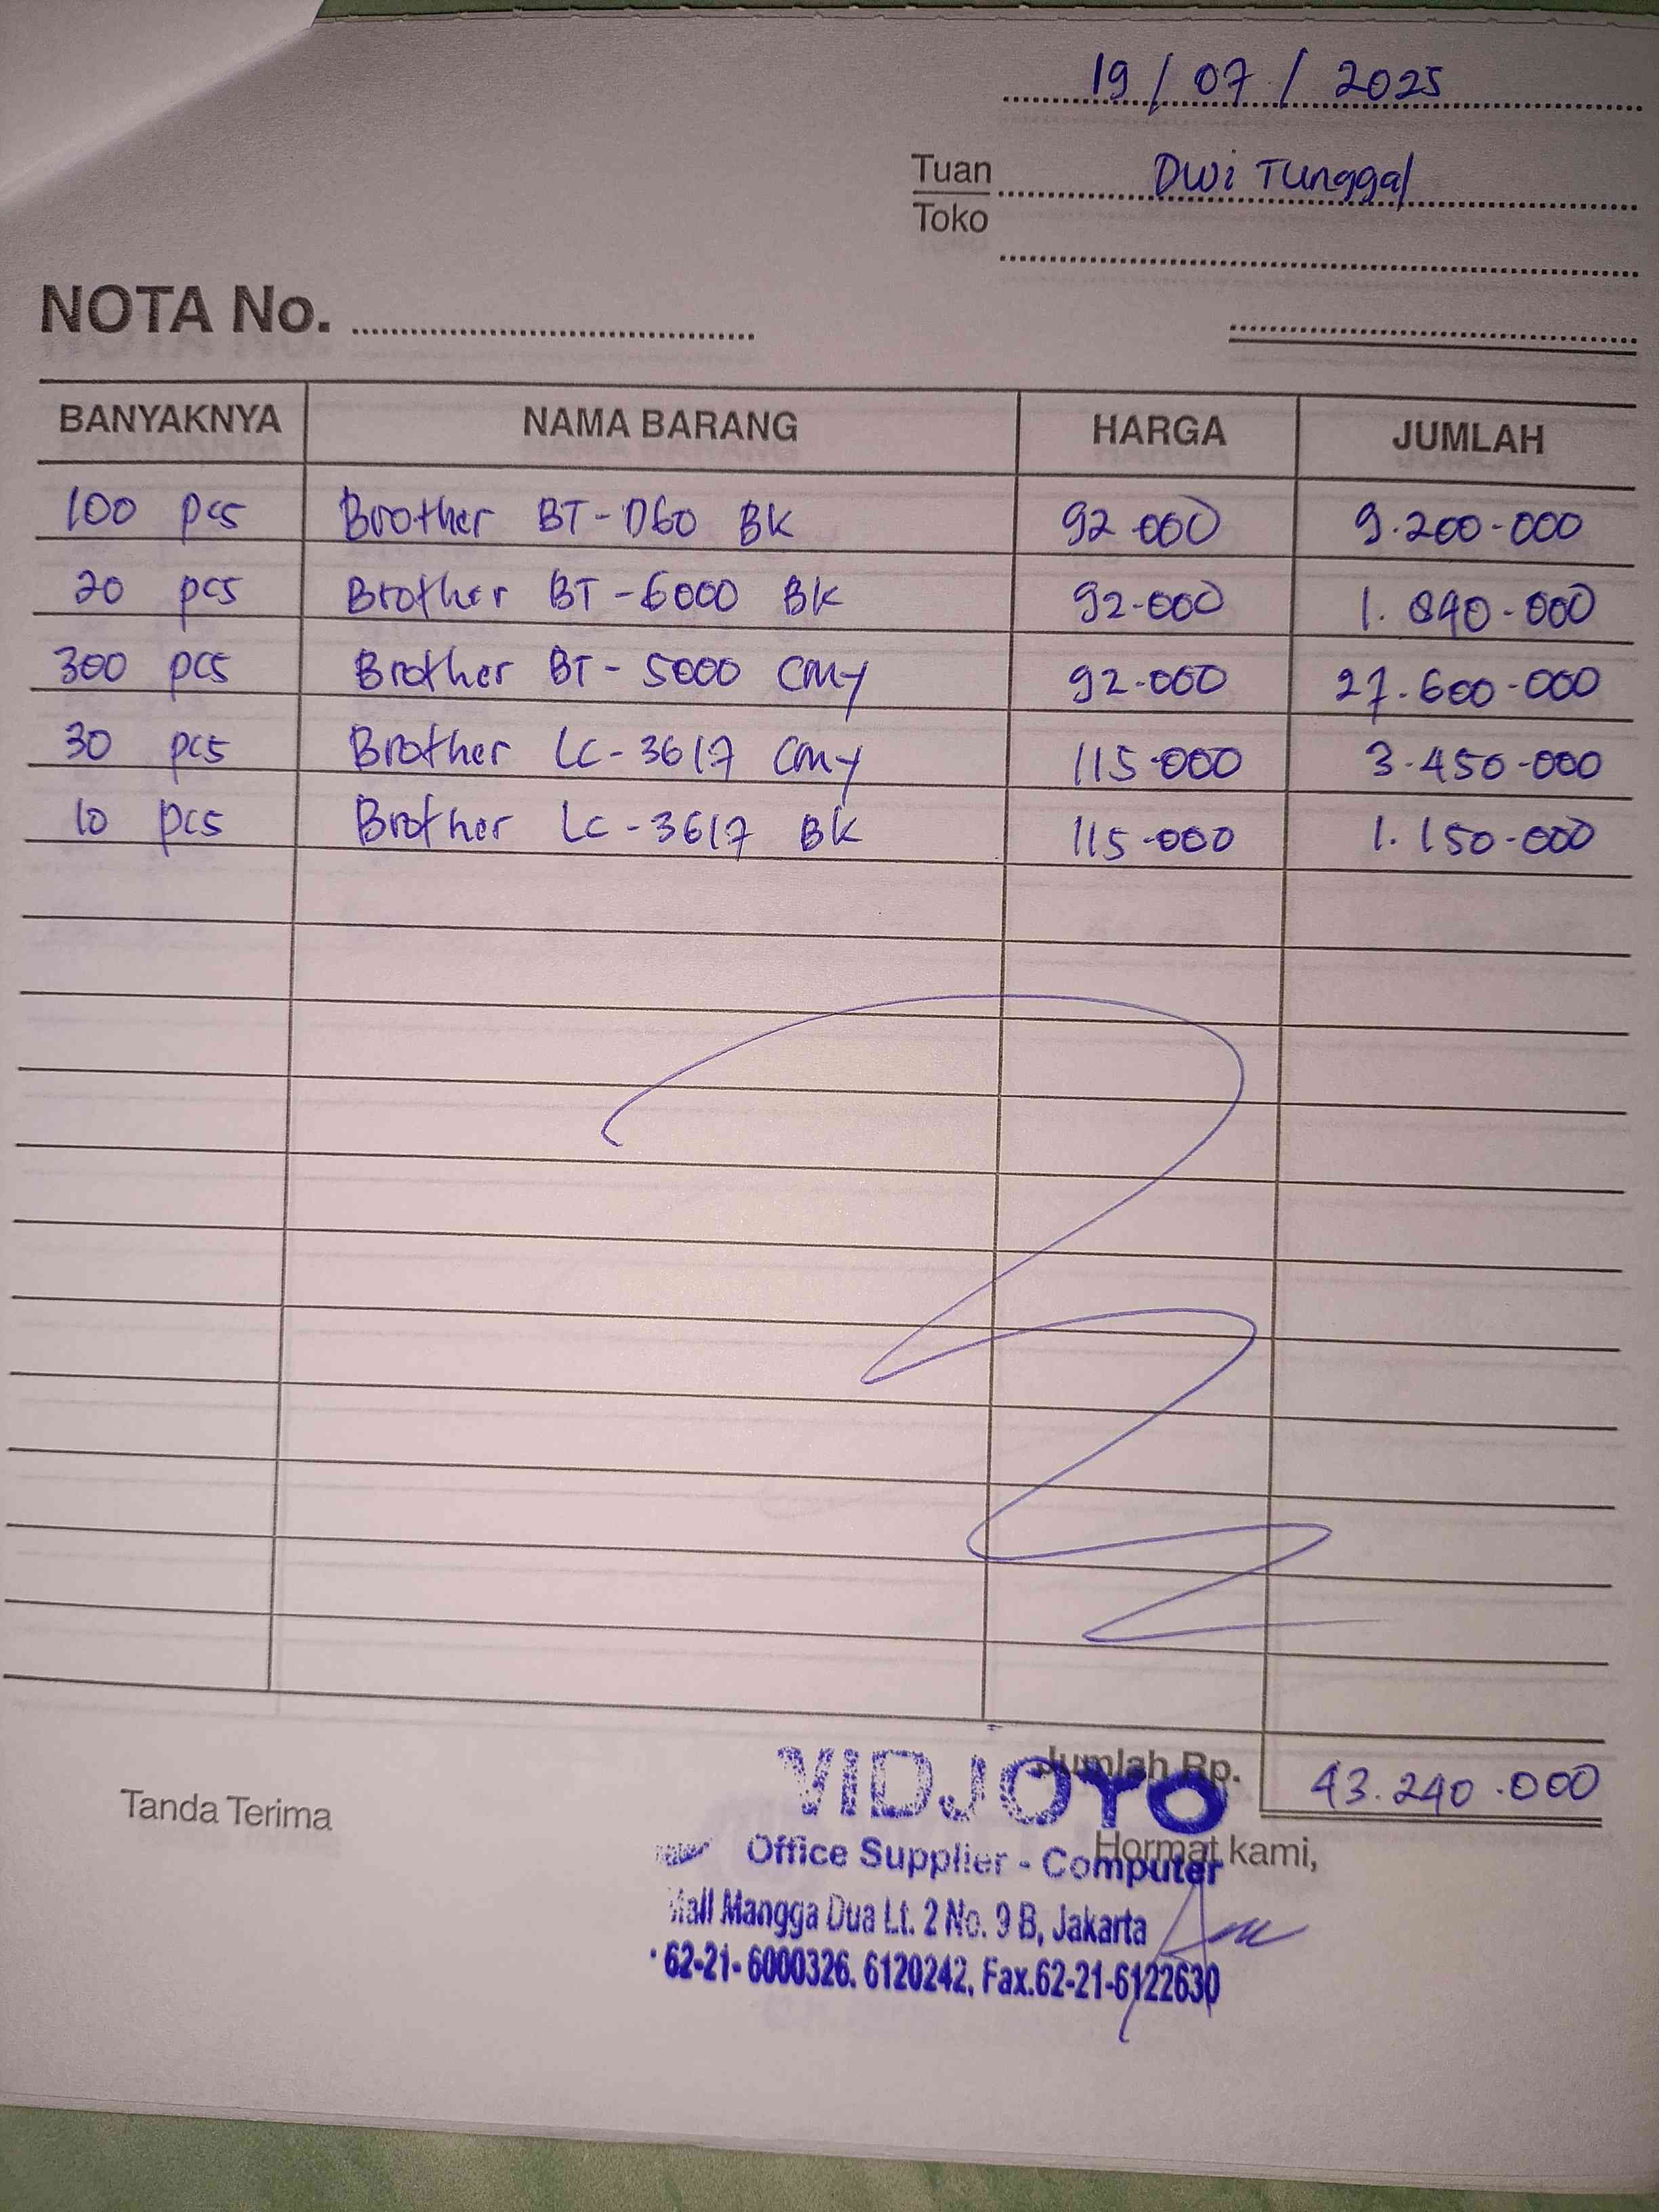 19 / 07 / 2025
Tuan Dwi Tunggal
Toko
NOTA No.
BANYAKNYA NAMA BARANG HARGA JUMLAH
100 pcs Brother BT-D60 BK 92.000 9.200.000
20 pcs Brother BT-6000 BK 92.000 1.840.000
300 pcs Brother BT-5000 CMY 92.000 27.600.000
30 pcs Brother LC-3617 CMY 115.000 3.450.000
10 pcs Brother LC-3617 BK 115.000 1.150.000
Jumlah Rp. 43.240.000
Tanda Terima
Hormat kami,
VIDJOYO
Office Supplier - Computer
Mall Mangga Dua Lt. 2 No. 9 B, Jakarta
62-21-6000326. 6120242, Fax.62-21-6122630